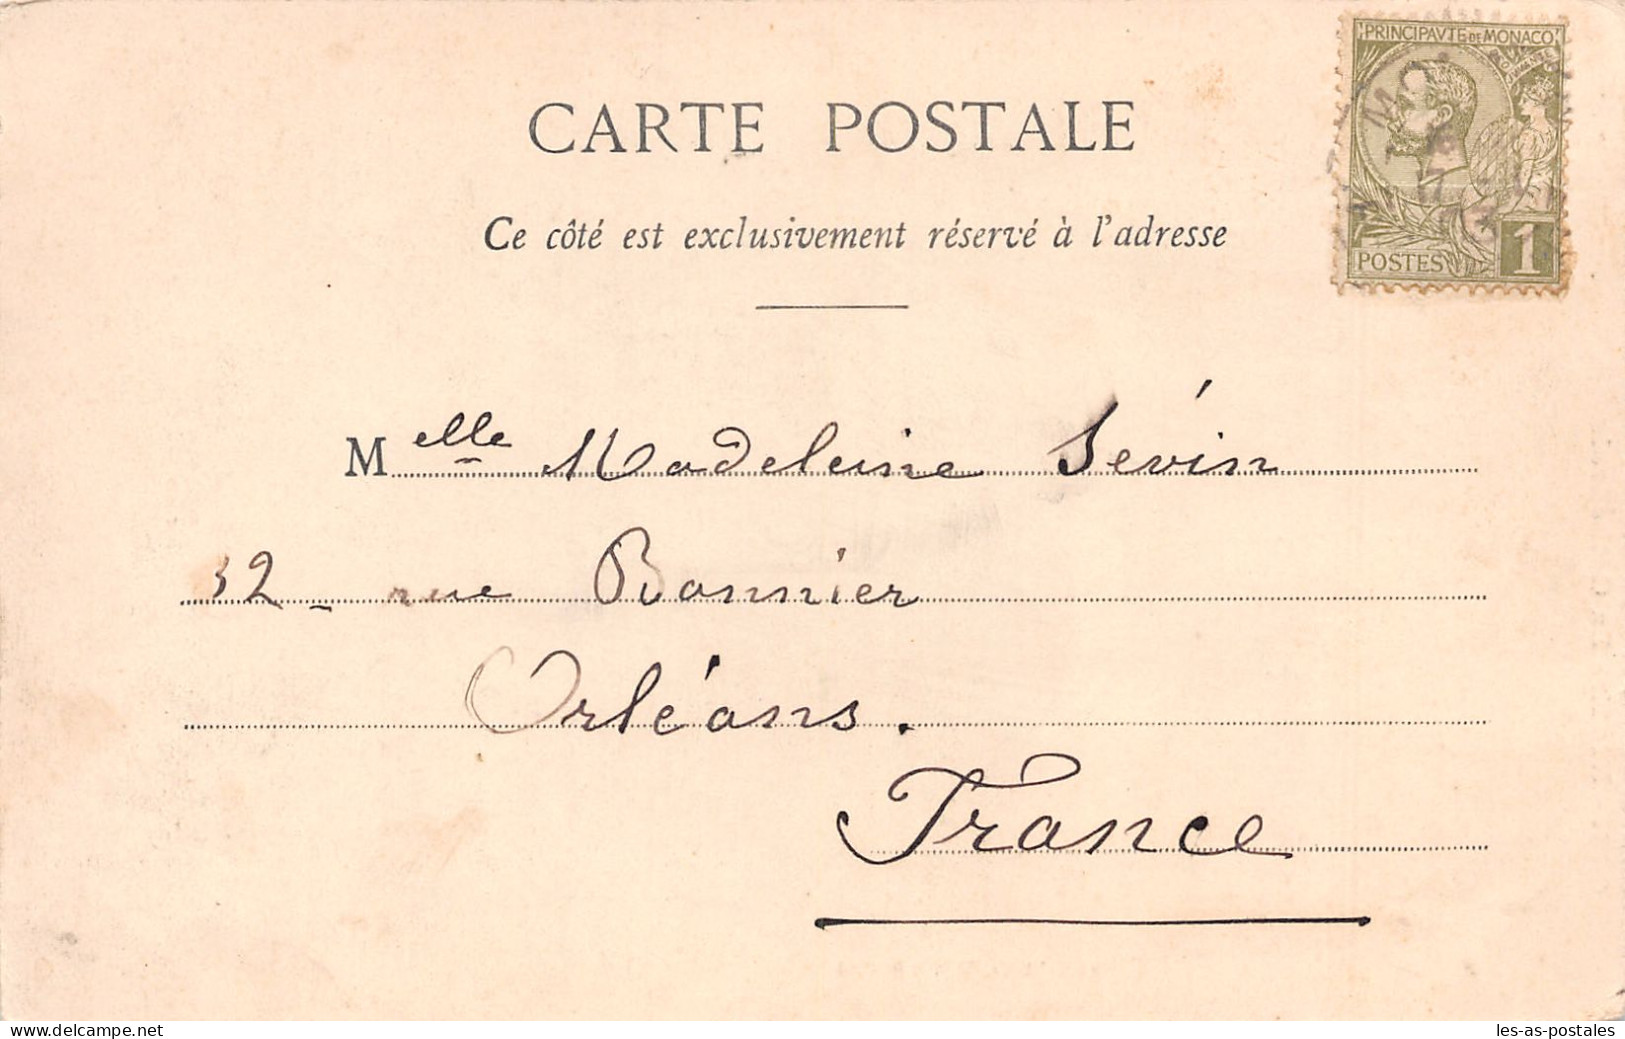 PRINCIPAVTE DE MONACO
CARTE POSTALE
Ce côté est exclusivement réservé à l'adresse
POSTES 1
Melle Madeleine Sévin
32 - rue Bannier
Orléans.
France
www.delcampe.net
les-as-postales